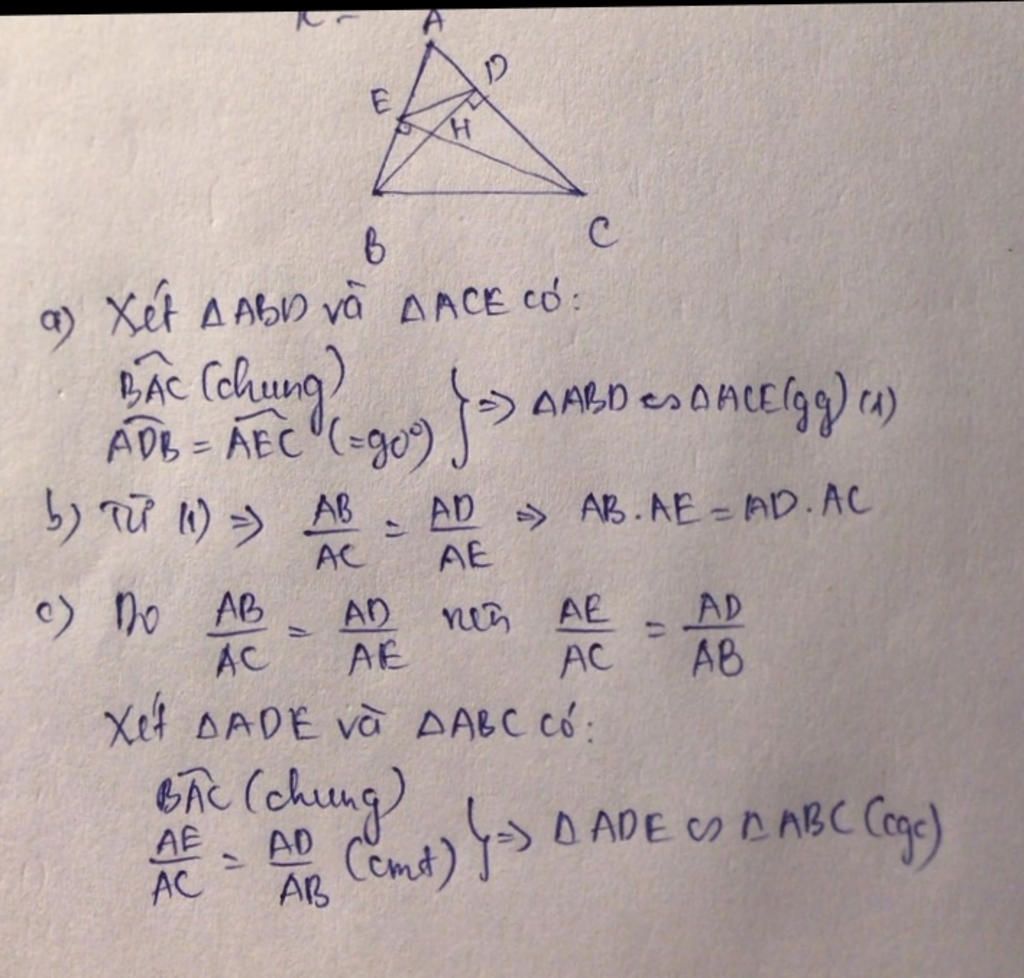 A
D
E
H
B
C
a) Xét △ABD và △ACE có:
\widehat{BAC} (chung)
\widehat{ADB} = \widehat{AEC} (=90°) } => △ABD ∽ △ACE (gg) (1)
b) Từ (1) => AB/AC = AD/AE => AB.AE = AD.AC
c) Do AB/AC = AD/AE nên AE/AC = AD/AB
Xét △ADE và △ABC có:
\widehat{BAC} (chung)
AE/AC = AD/AB (cmt) } => △ADE ∽ △ABC (cgc)